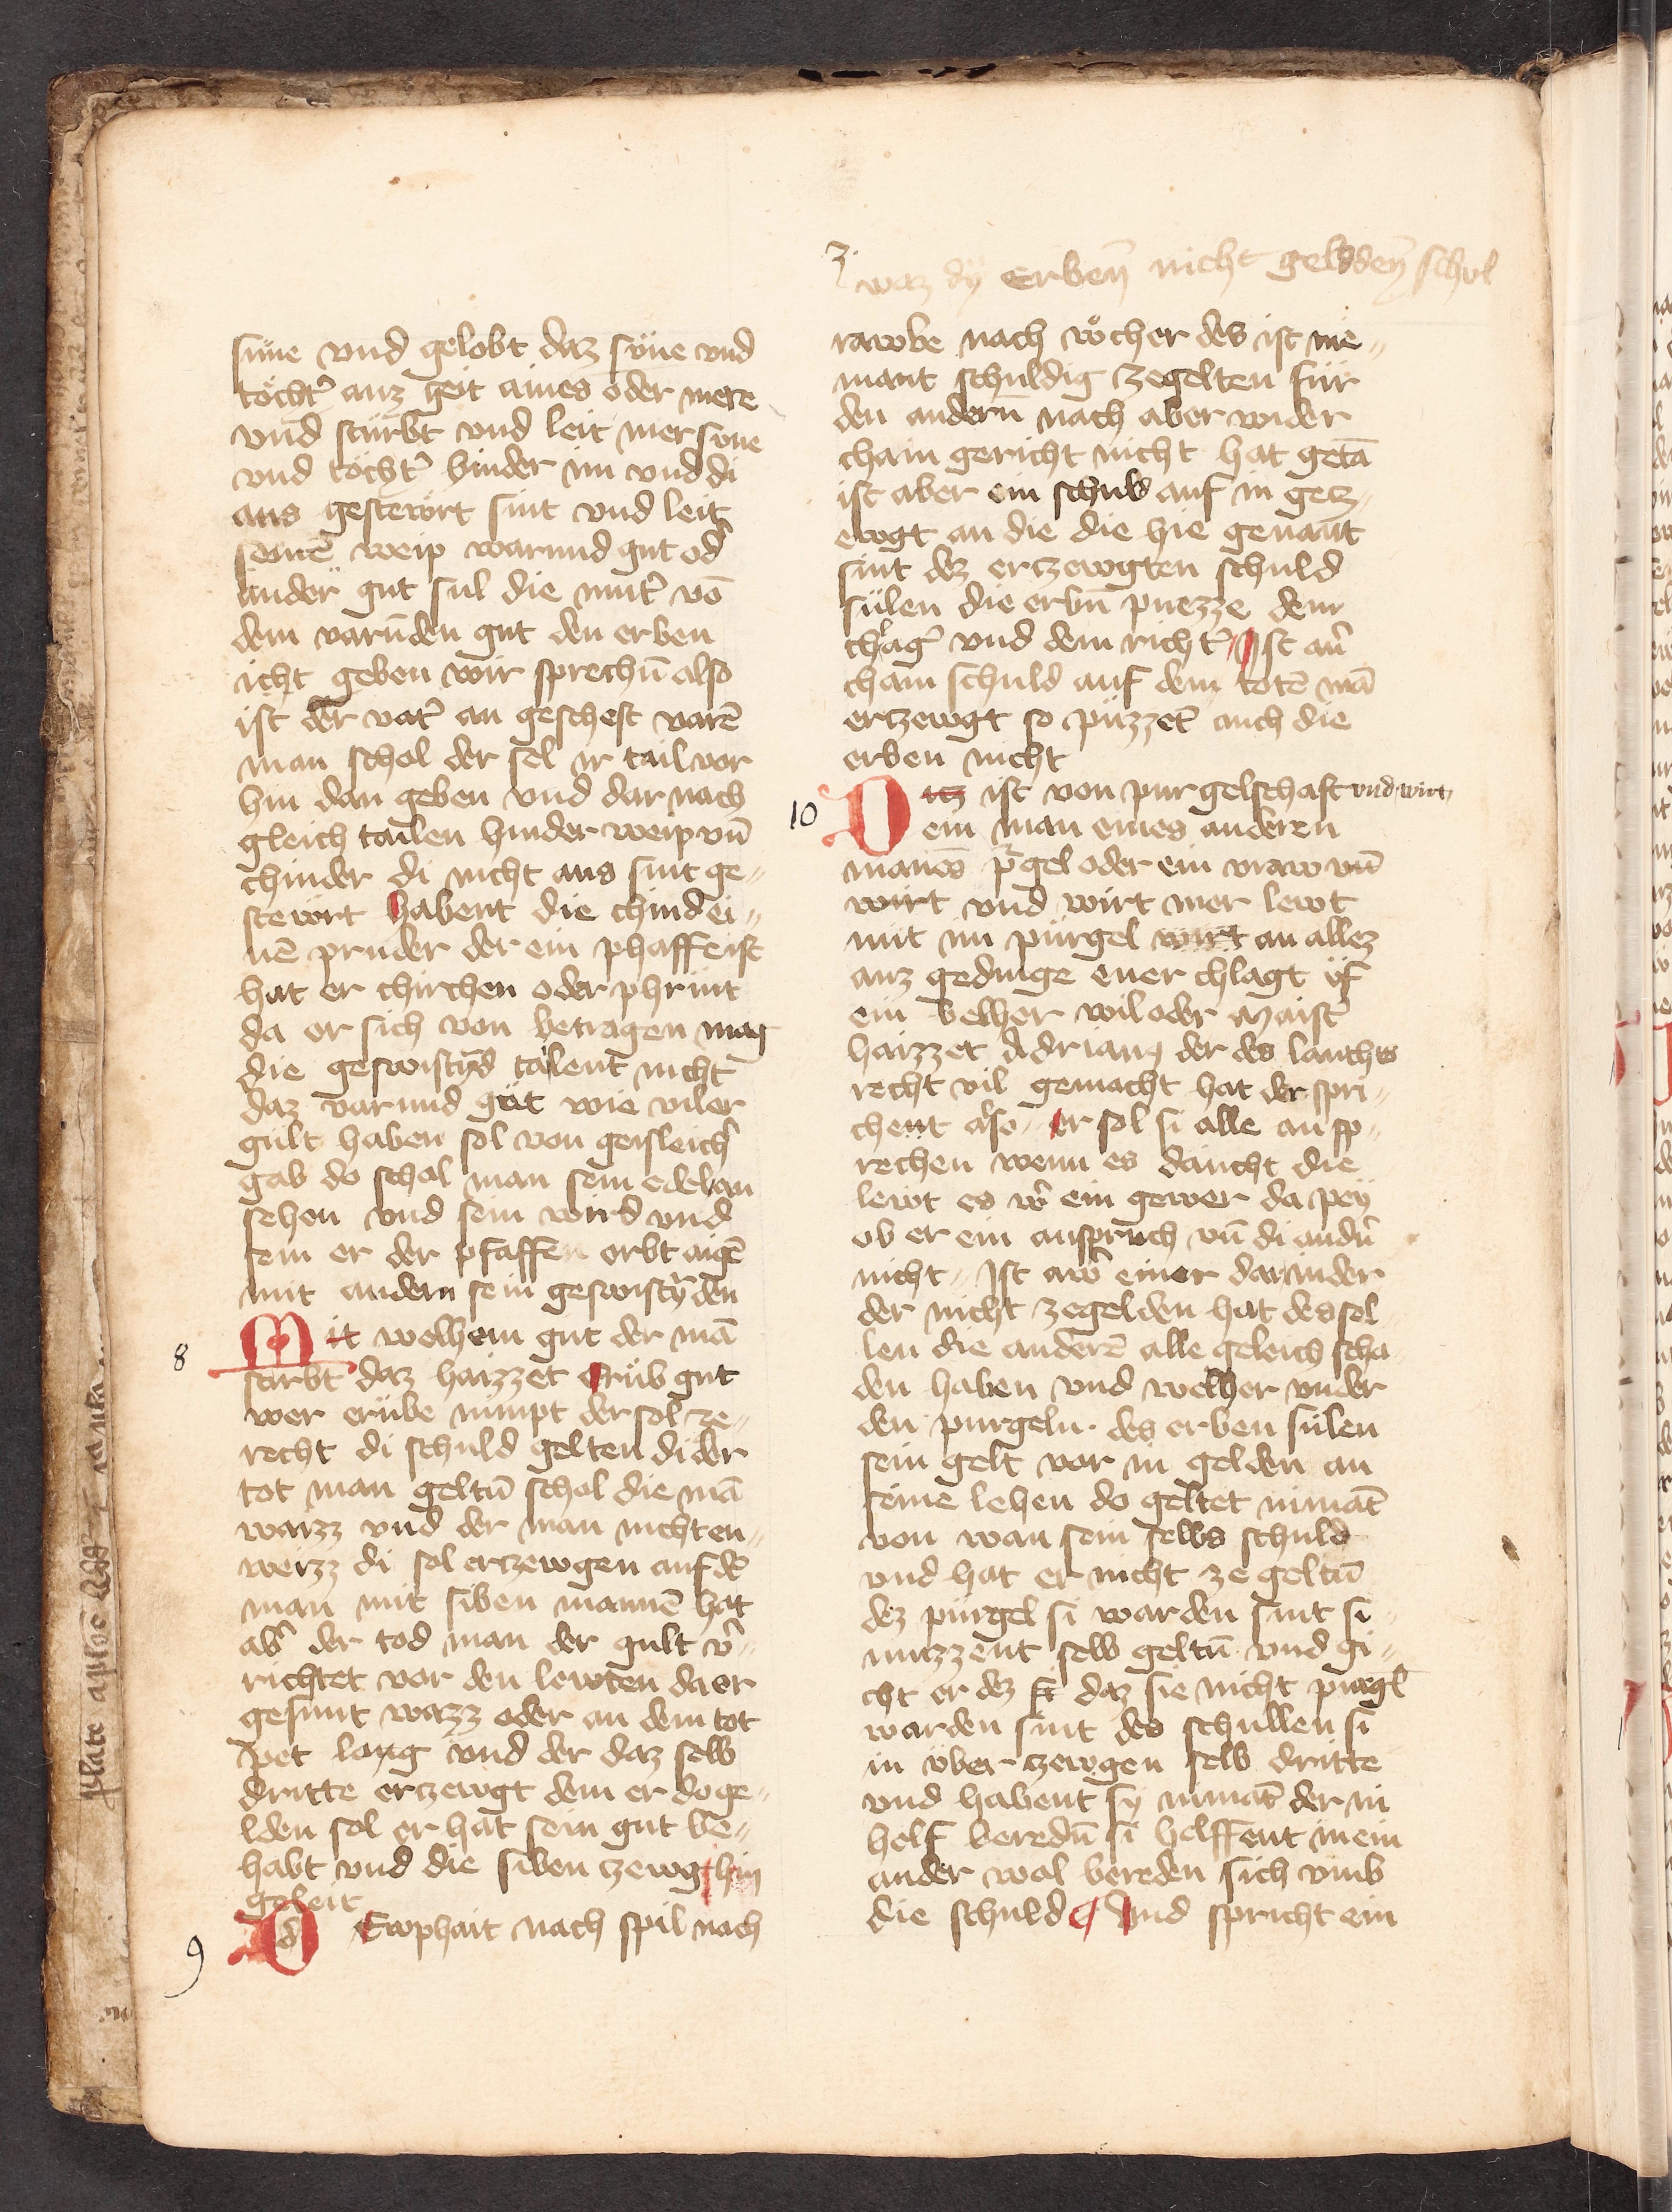 süne vnd gelobt daz süne vnd
töcht̉ auz geit aines oder mere
vnd stürbt vnd leit mer süne
vnd töcht̉ hinder im vnd di
aus gestewrt sint vnd leit
seinē weip varund gut od̉
ander gut sul die mut̉ vō
dem varūden gut den erben
icht geben wir sprechn̄ also
ist der vat̉ an gescheft varē
man schol der sel ir tail vor
hin dan geben vnd dar nach
gleich tailen hinder weip vn̄
chinder di nicht aus sint ge„
stewrt habent die chind ei„
nē pruder der ein phaffe ist
hat er chirchen oder phrünt
da er sich von betragen mag
die geswistr̄d tailent nicht
daz varund güt wie viler
gült haben sol von geisleich̉
gab do schol man sein edel an
sehen vnd sein wird vnd
sein er der pfaffen erbt aigē
mit andern sein geswistr̄den
8
Mit welhem gut der mā
starbt daz haizzet Erüb gut
wer erübe nimpt der sol ze„
recht di schuld gelten di der
tot man geltn̄ schol die mā
waizz vnd der man nicht en„
weizz di sol erzewgen auf dē
man mit siben mannē hat
ab̉ der tod man der gült v̉„
richtet vor den lewten da er
gesunt wazz oder an dem tot
pet lang vnd der daz selb
dritte erzewgt dem er do ge„
lden sol er hat sein gut be„
habt vnd die siben zewg hin
geleit
9
D Ewphait nach spil nach
3.
waz dÿ Erben̄ nicht geldden̄ schol
rawbe nach wöcher des ist nie„
mant schuldig zegelten für
den andern̄ nach aber wider
chain gericht nicht hat getā
ist aber ein schuld auf in gecz„
ewgt an die die hie genant
sint dez erczewgten schuld
sülen die erbn̄ puezze dem
chlag̉ vnd dem richt̉ Ist ab̉
chain schuld auf dem totē mā
erczewgt so püzzet auch die
erben nicht
10
Daz ist von purgelschaft vnd wirt
ein man eines anderen
mannes p̉gel oder ein vraw vn̄
wirt vnd wirt mer lewt
mit im pürgel wirt an allez
auz gedinge ener chlagt vf
ein welher wil oder Maist̉
haizzet Adrian der des lanthes
recht vil gemacht hat der spri„
chent also er sol si alle an sp„
rechen wenn es daucht die
lewt es w̉ ein gewer da pey
ob er ein ansprich vn̄ di and̉n
nicht Ist aw̉ einer darunder
der nicht zegelden hat des sol
len die anderē alle geleich scha
den haben vnd welher vnder
den purgeln des erben sülen
sein gelt vor in gelden an
seine lehen do geltet nimāt
von wan sein selbs schuld
vnd hat er nicht ze geltn̄
dez pürgel si warden sint si
muzzent selb geltn̄ vnd gi„
cht er dez daz sie nicht purgl̄
warden sint des schullen si
in über zewgen selb dritte
vnd habent sy nimāt der in
helf beredn̄ si helffent in ein
ander wol bereden sich vmb
die schuld Vnd spricht ein